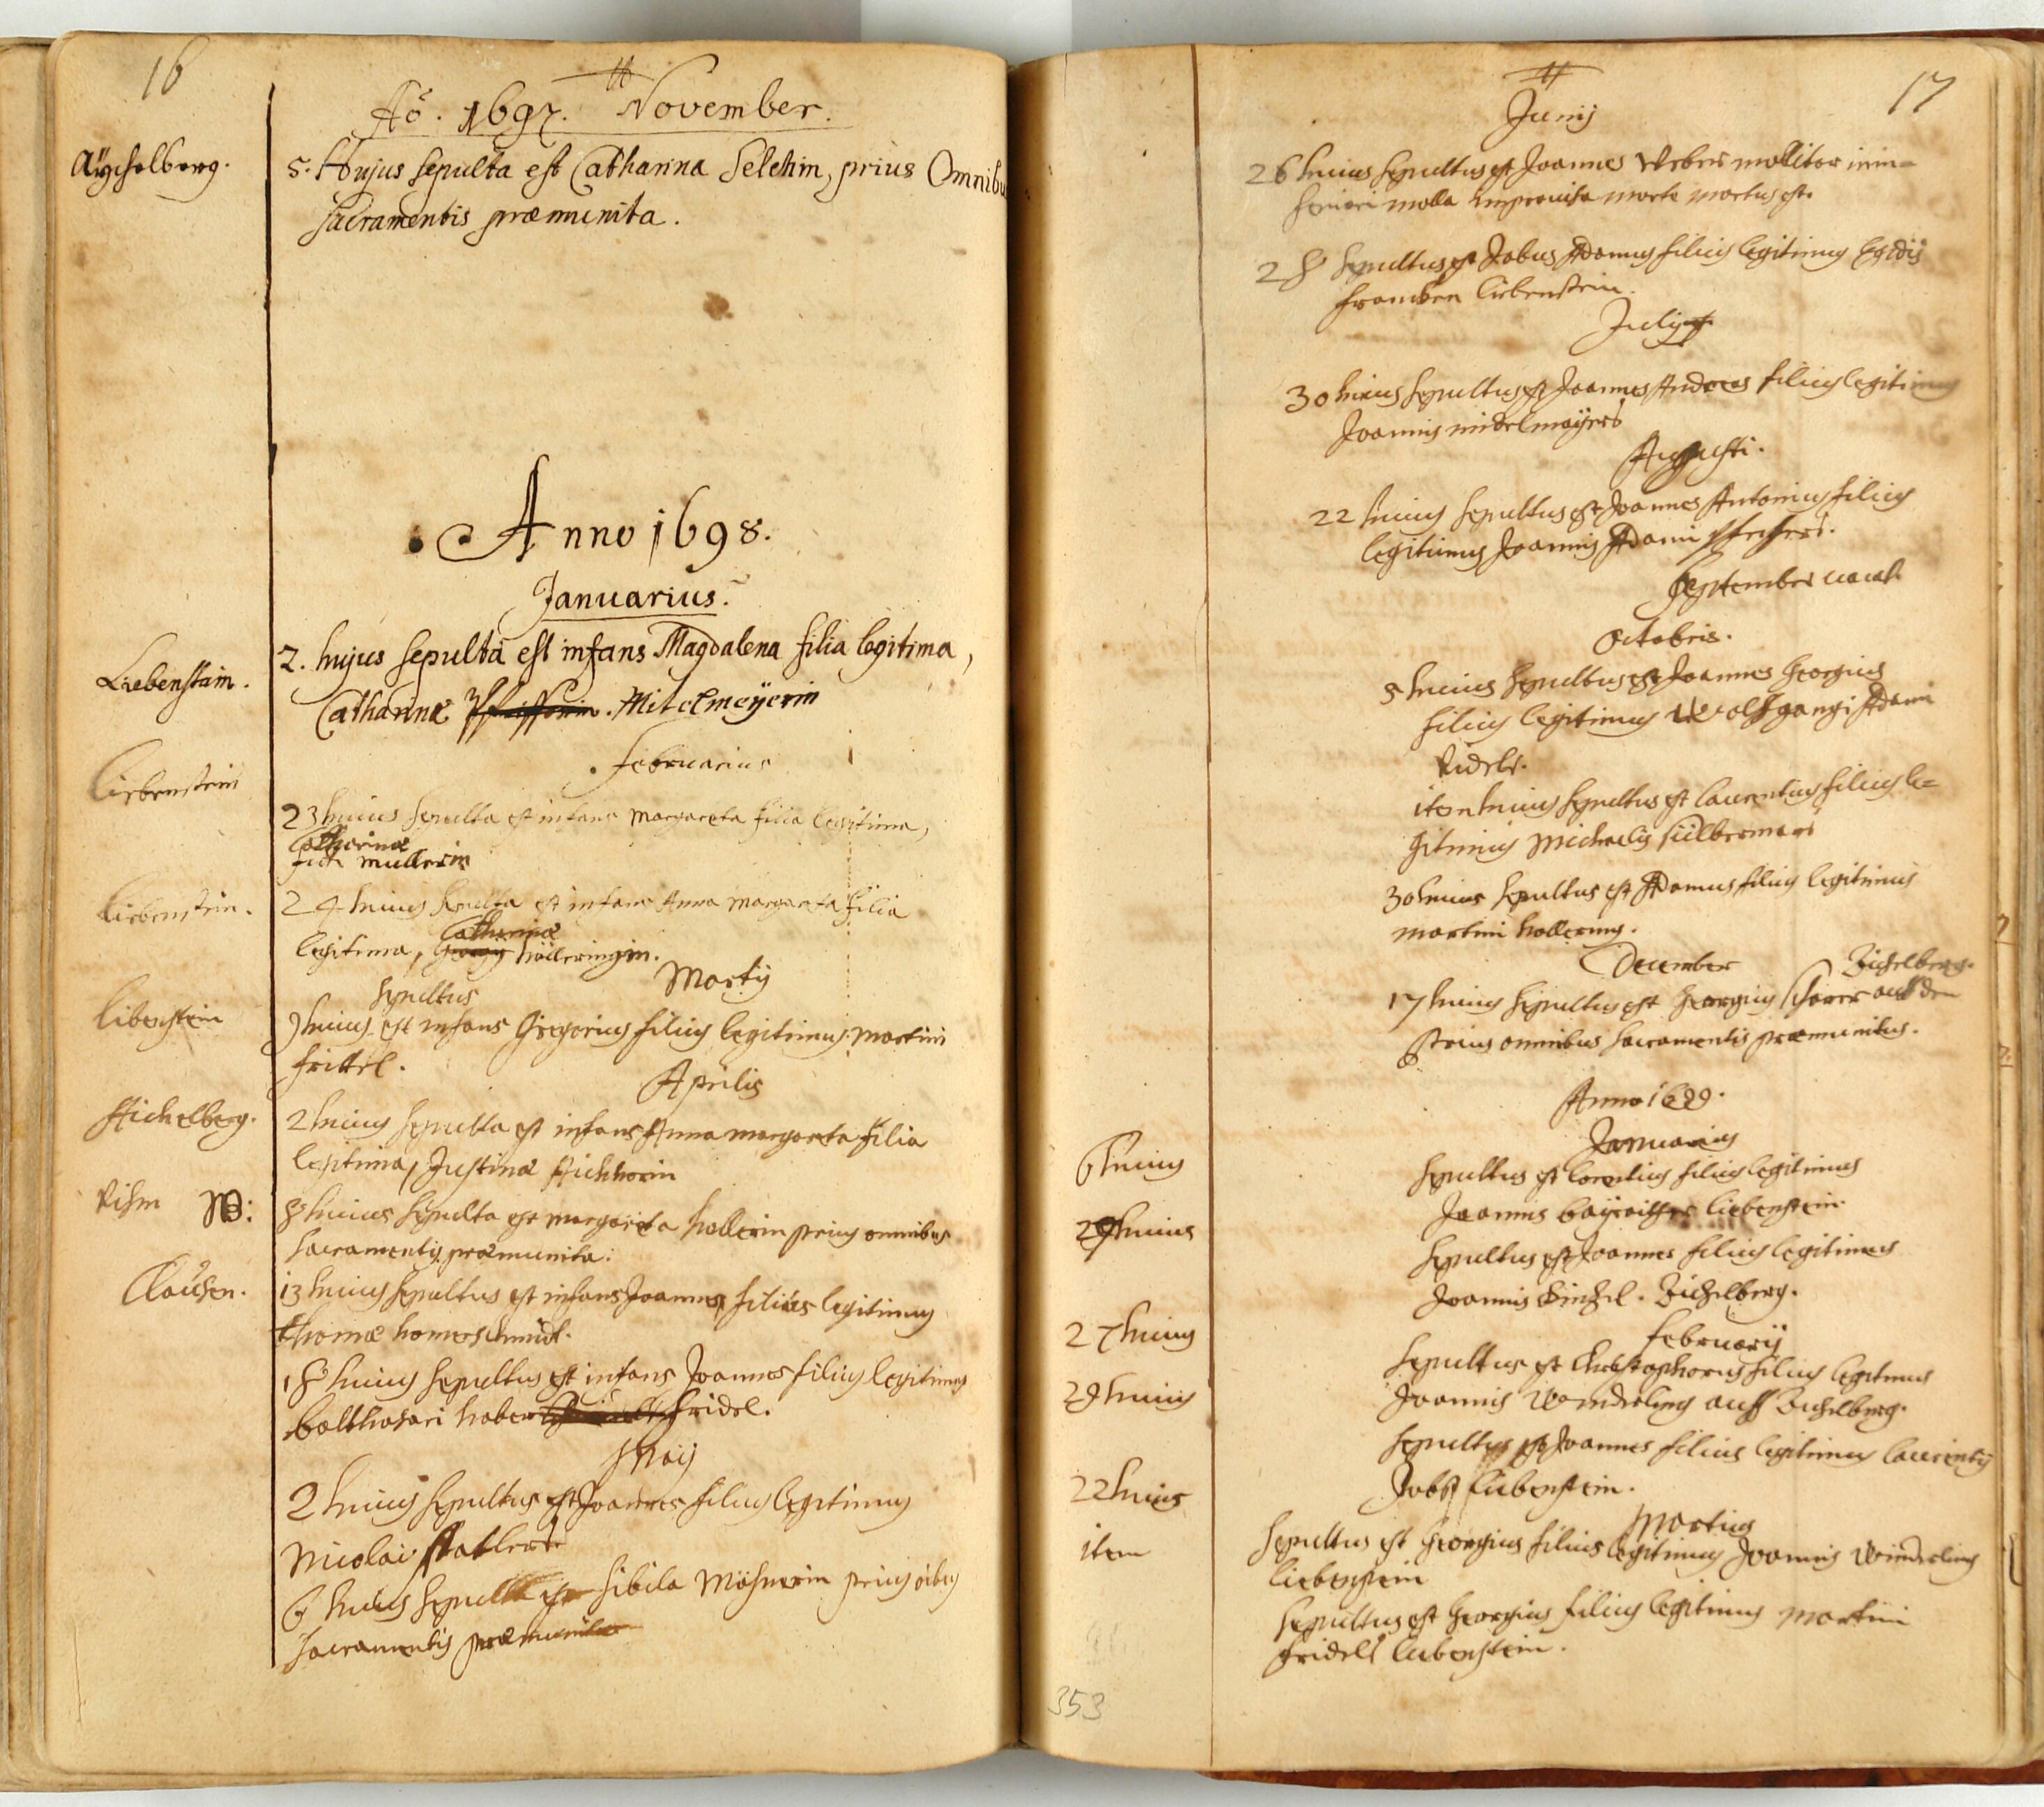 16
Aÿchelberg.
Aõ. 1697. November.
5. Hujus sepulta est Catharina Selchin, prius Omnibu
sacramentis præmunita.
Anno 1698.
Januarius.
Liebenstain.
2. hujus sepulta est infans Magdalena filia legitima,
Catharinæ Mitelmeÿerin
Februarius
Liebenstein
23 huius sepulta est infans Margareta filia legitima,
Catharinæ
mullerin
Liebenstein.
24 huius sepulta est infans Anna Margareta filia
Catharinæ
legitima, Georgij hölleringin.
Martij
sepultus
Libenstein
9 huius est infans Gregorius filius legitimus Martini
frittel.
Aprilis
Aichelberg.
2 huius sepulta est infans Anna margareta filia
legitima, Justinæ Aichhorin
8 huius sepulta est margareta hollerin prius omnibus
sacramentis præmunita.
Clausen.
13 huius sepultus est infans Joannes filius legitimus
thomæ homerschmidt.
18 huius sepultus est infans Joannes filius legitimus
balthasari haber fridel.
Maij
2 huius sepultus est Joannes filius legitimus
Nicolai statlers
6 huius sepulta est sibila Mösnerin prius oibus
sacramentis præmunita
17
Junij
26 huius sepultus est Joannes Weber mollitor in in-
feriori molla improuisa morte mortus est.
28 sepultus est Jobus Adamus filius legitimus Egidij
franckn liebenstein.
Julij
30 huius sepultus est Joannes Andreas filius legitimus
Joannis midelmayers
Augusti.
22 huius sepultus est Joannes Antonius filius
legitimus Joannis Adami
September uacat
Octobris.
5 huius sepultus est Joannes Georgius
filius legitimus Wolfgangi Adami
Ridels.
item huius sepultus est laurentius filius le-
gitimus Michaelis silberman
30 huius sepultus est Adamus filius legitimus
martini hollering.
December
Eichelberg.
17 huius sepultus est Georgius schorer auf den
prius omnibus sacramentis præmunitus.
Anno 1699.
Januarius
6 huius
sepultus est laurentius filius legitimus
Joannis bayreither liebenstein.
29 huius
sepultus est Joannes filius legitimus
Joannis Binhel. Eichelberg.
Februarij
27 huius
sepultus est Christophorus filius legitimus
Joannis Winderling auff Eichelberg.
29 huius
sepultus est Joannes filius legitimus laurentij
Jobst liebenstein.
Martius
22 huius
sepultus est Georgius filius legitimus Joannis Winderling
liebenstein
item
sepultus est Georgius filius legitimus Martini
fridels liebenstein.
353